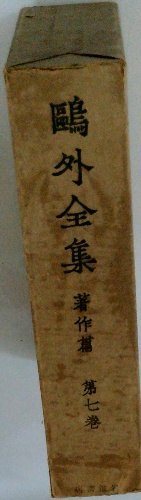 鷗外全集
著作篇
第七卷